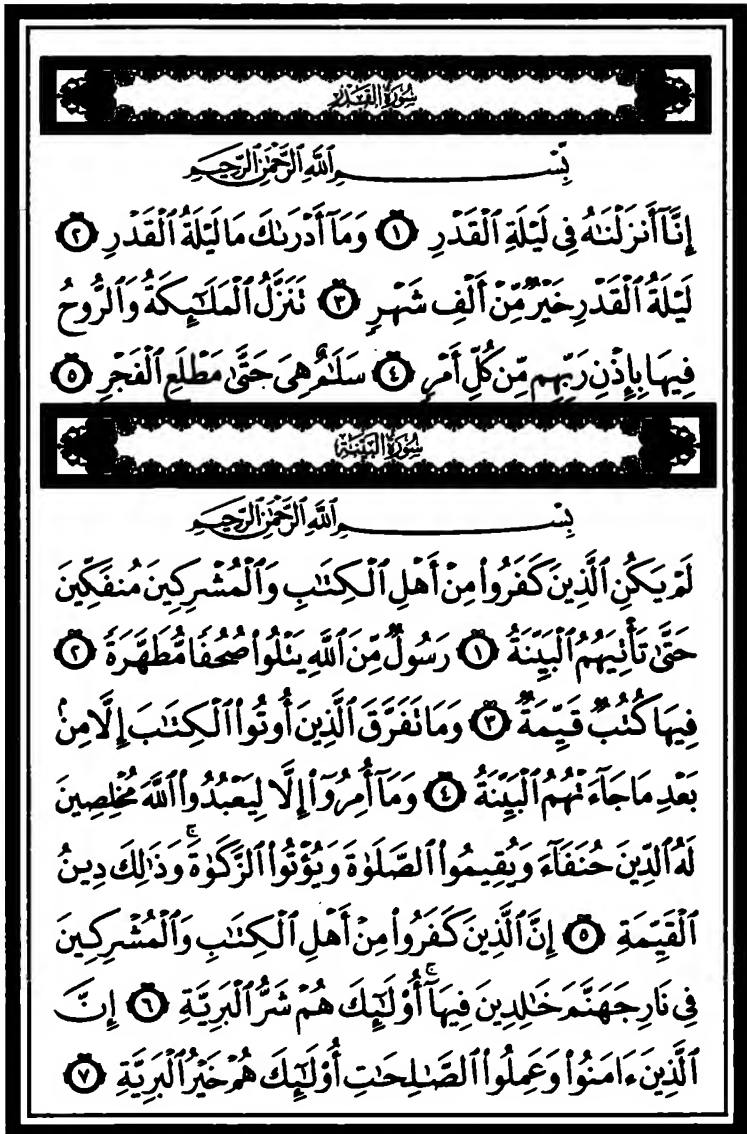 سُورَةُ الْقَدْرِ
بِسْمِ اللَّهِ الرَّحْمَٰنِ الرَّحِيمِ
إِنَّآ أَنزَلْنَٰهُ فِى لَيْلَةِ ٱلْقَدْرِ ١ وَمَآ أَدْرَىٰكَ مَا لَيْلَةُ ٱلْقَدْرِ ٢
لَيْلَةُ ٱلْقَدْرِ خَيْرٌ مِّنْ أَلْفِ شَهْرٍ ٣ تَنَزَّلُ ٱلْمَلَٰٓئِكَةُ وَٱلرُّوحُ
فِيهَا بِإِذْنِ رَبِّهِم مِّن كُلِّ أَمْرٍ ٤ سَلَٰمٌ هِىَ حَتَّىٰ مَطْلَعِ ٱلْفَجْرِ ٥
سُورَةُ الْبَيِّنَةِ
بِسْمِ ٱللَّهِ ٱلرَّحْمَٰنِ ٱلرَّحِيمِ
لَمْ يَكُنِ ٱلَّذِينَ كَفَرُوا۟ مِنْ أَهْلِ ٱلْكِتَٰبِ وَٱلْمُشْرِكِينَ مُنفَكِّينَ
حَتَّىٰ تَأْتِيَهُمُ ٱلْبَيِّنَةُ ١ رَسُولٌ مِّنَ ٱللَّهِ يَتْلُوا۟ صُحُفًا مُّطَهَّرَةً ٢
فِيهَا كُتُبٌ قَيِّمَةٌ ٣ وَمَا تَفَرَّقَ ٱلَّذِينَ أُوتُوا۟ ٱلْكِتَٰبَ إِلَّا مِنۢ
بَعْدِ مَا جَآءَتْهُمُ ٱلْبَيِّنَةُ ٤ وَمَآ أُمِرُوٓا۟ إِلَّا لِيَعْبُدُوا۟ ٱللَّهَ مُخْلِصِينَ
لَهُ ٱلدِّينَ حُنَفَآءَ وَيُقِيمُوا۟ ٱلصَّلَوٰةَ وَيُؤْتُوا۟ ٱلزَّكَوٰةَ ۚ وَذَٰلِكَ دِينُ
ٱلْقَيِّمَةِ ٥ إِنَّ ٱلَّذِينَ كَفَرُوا۟ مِنْ أَهْلِ ٱلْكِتَٰبِ وَٱلْمُشْرِكِينَ
فِى نَارِ جَهَنَّمَ خَٰلِدِينَ فِيهَآ ۚ أُو۟لَٰٓئِكَ هُمْ شَرُّ ٱلْبَرِيَّةِ ٦ إِنَّ
ٱلَّذِينَ ءَامَنُوا۟ وَعَمِلُوا۟ ٱلصَّٰلِحَٰتِ أُو۟لَٰٓئِكَ هُمْ خَيْرُ ٱلْبَرِيَّةِ ٧